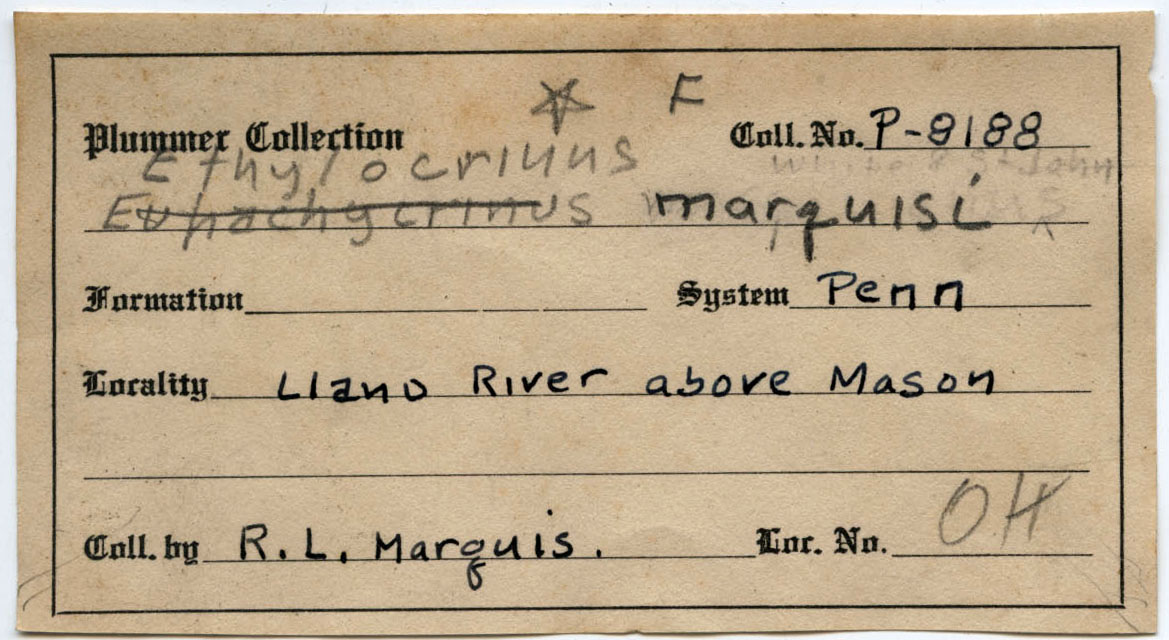 F
Plummer Collection Coll. No. P-8188
Ethylocrinus
Eupachycrinus marquisi
Formation System Penn
Locality Llano River above Mason
Coll. by R. L. Marquis. Loc. No. OH